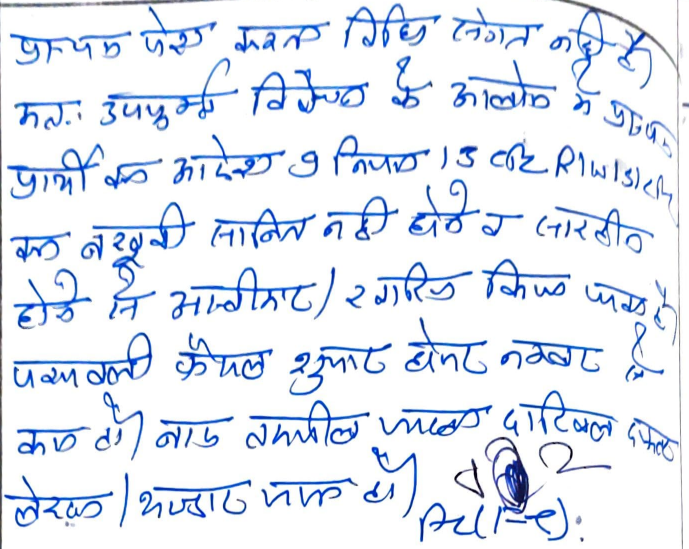 प्रा०पत्र पेश करना विधि संगत नहीं है।
अतः उपर्युक्त विवेचन के आलोक में प्रा०पत्र
प्रार्थी का आदेश 9 नियम 13
का बखूबी साबित नहीं होने व सारहीन
होने से अस्वीकार / खारिज किया जाता है।
पत्रावली फैसल शुमार होकर नम्बर से
कम हो। बाद तकमील पत्रावली दाखिल दफ्तर
लेखक / भण्डार जमा हो।